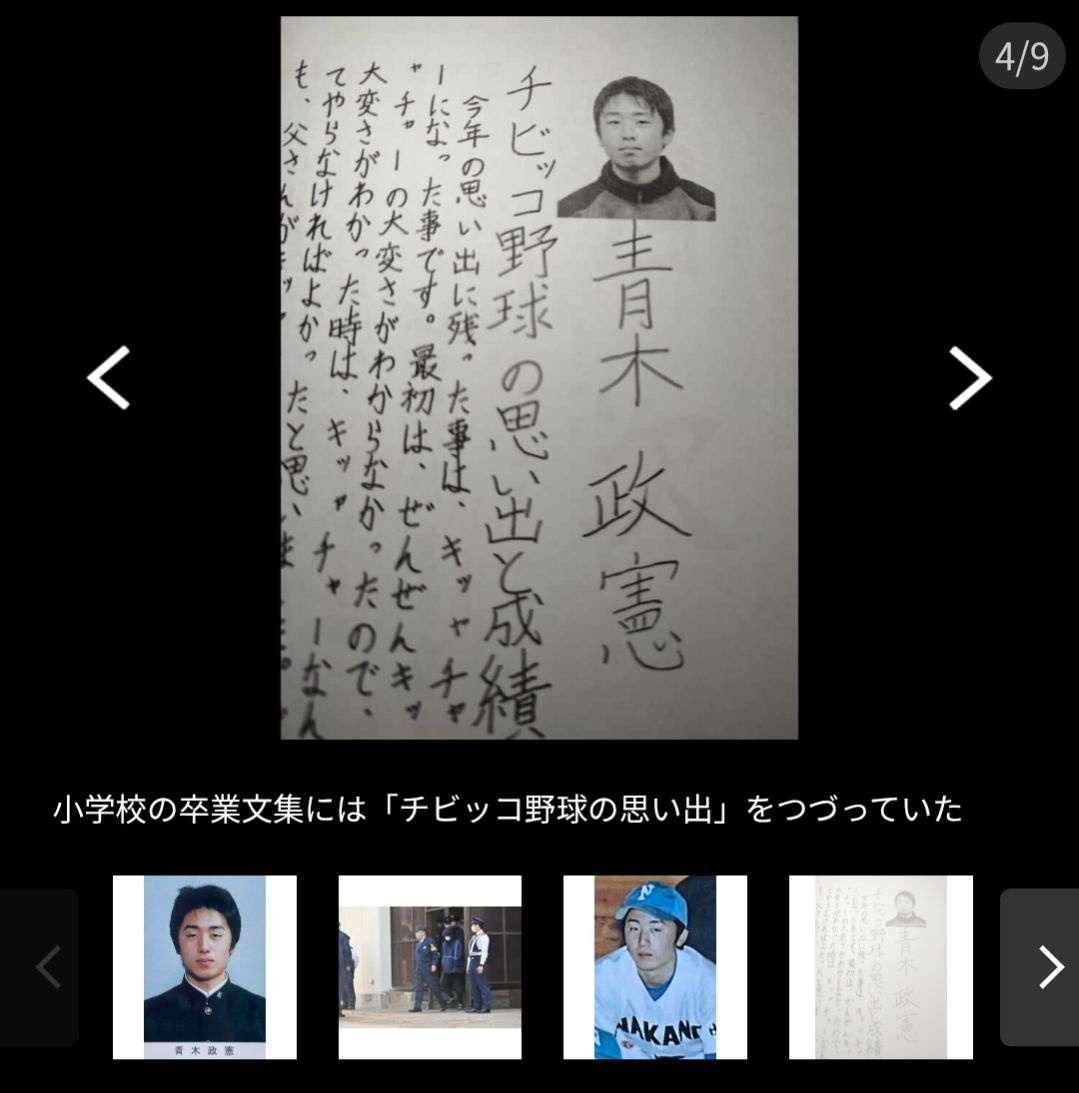 4/9
青木 政憲
チビッコ野球の思い出と成績
今年の思い出に残った事は、キャッチャ
ーになった事です。最初は、ぜんぜんキャッ
チャーの大変さがわからなかったので、
大変さがわかった時は、キャッチャーなん
てやらなければよかったと思い
も、父さんが
小学校の卒業文集には「チビッコ野球の思い出」をつづっていた
青木政憲
N
NAKANO
チビッコ野球の思い出と成績
青木 政憲